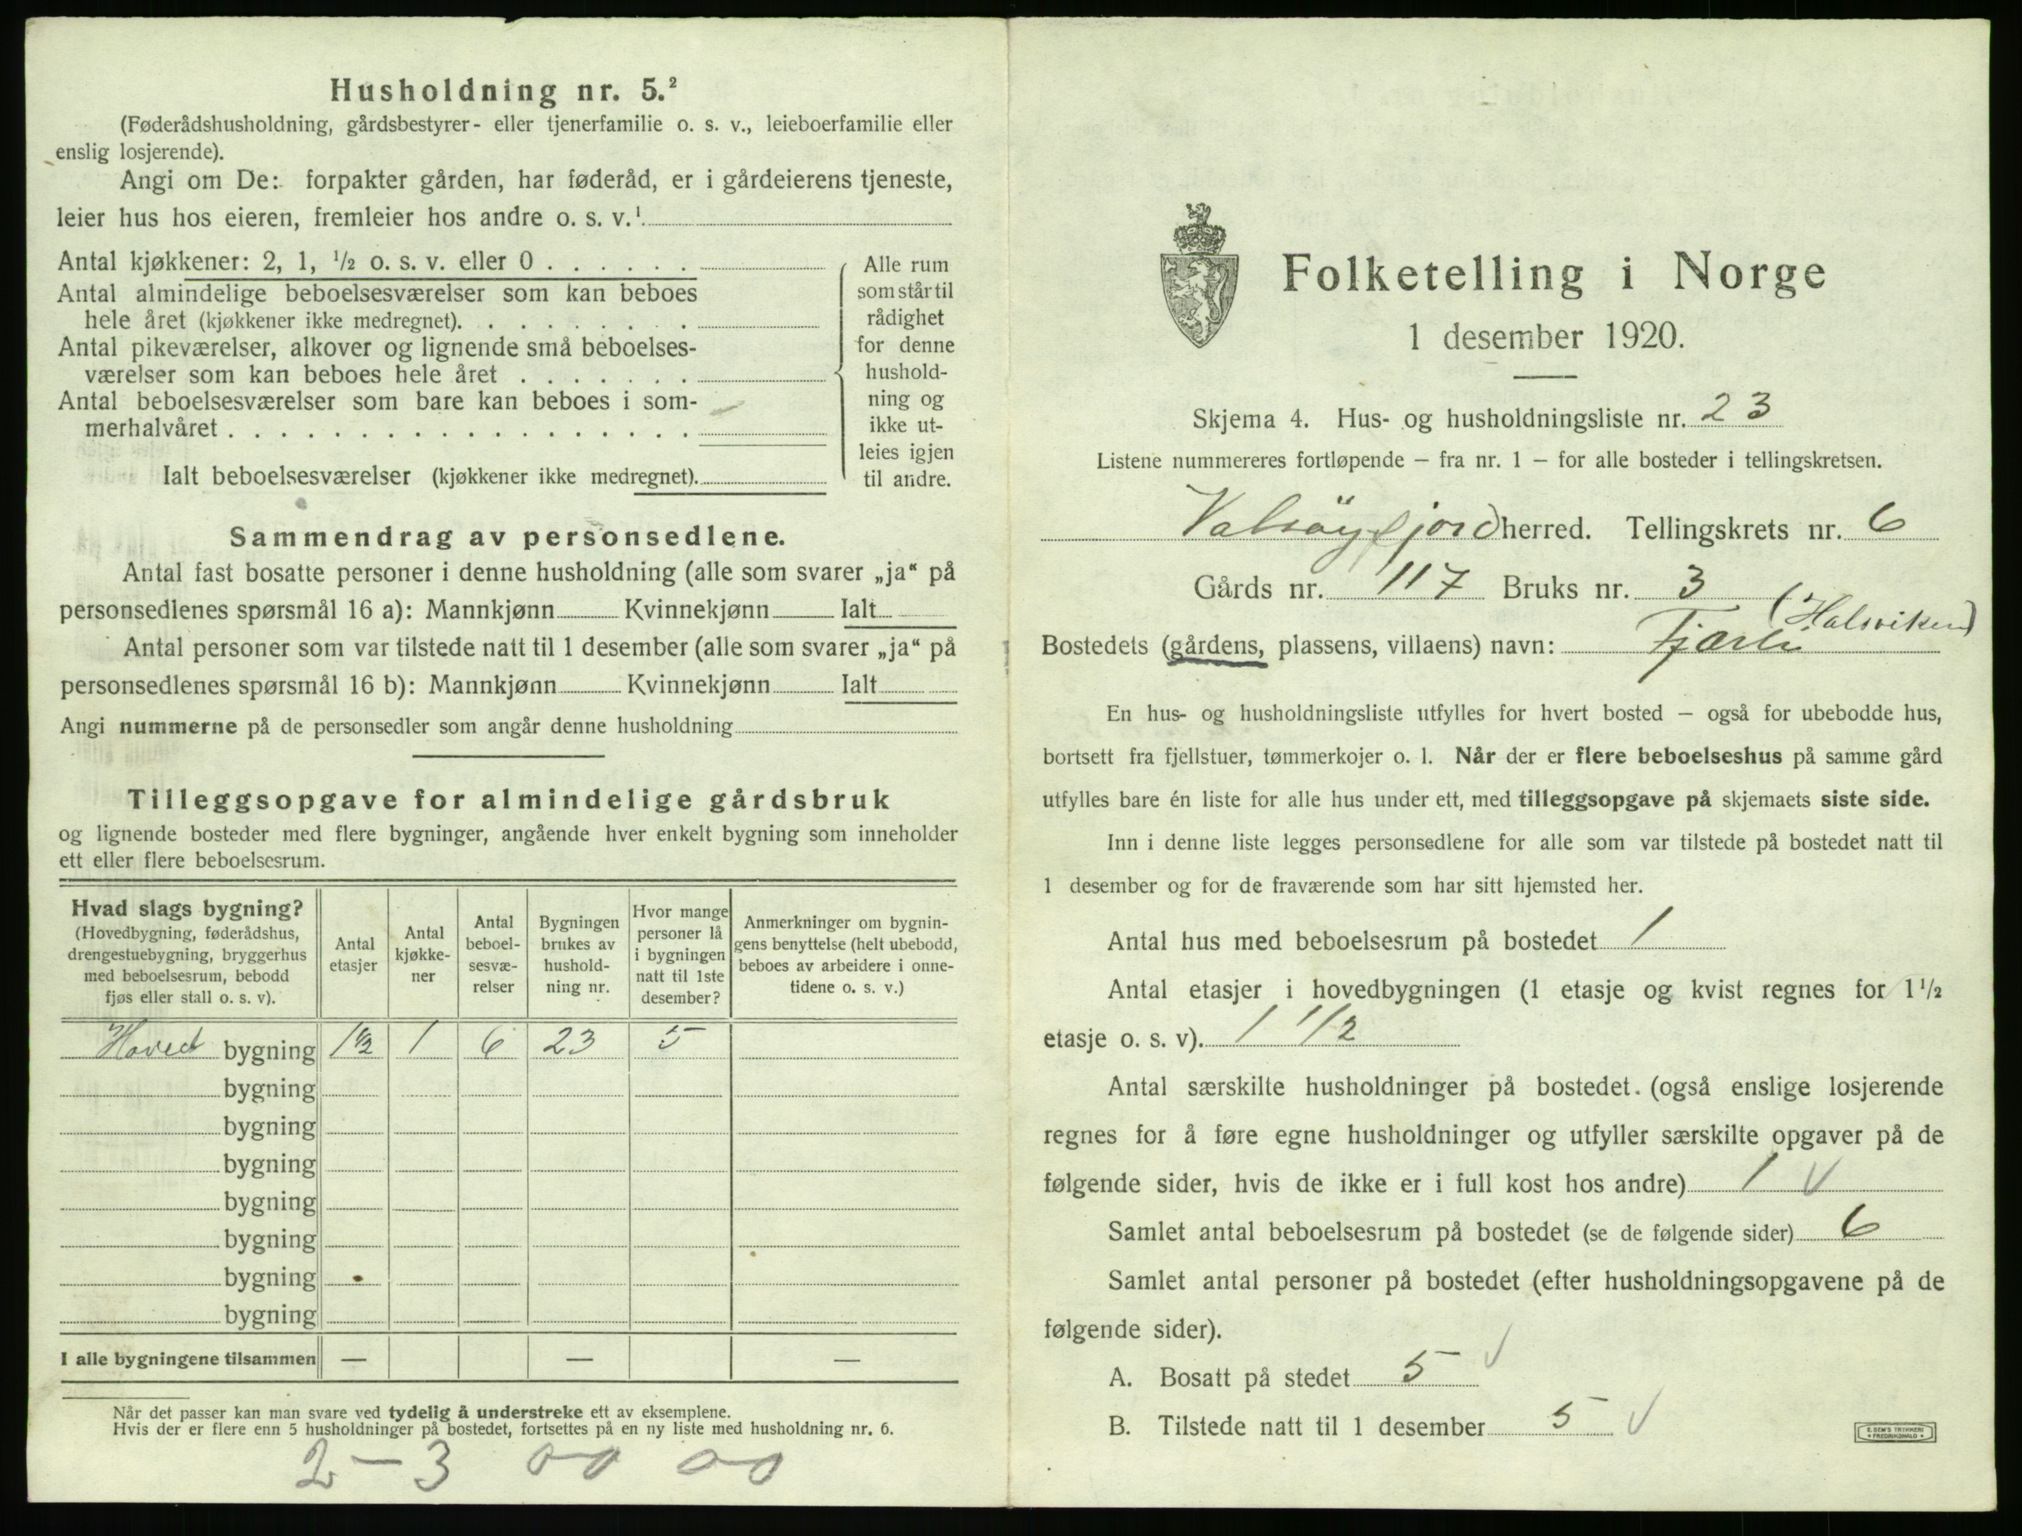 Husholdning nr. 5.²
(Føderådshusholdning, gårdsbestyrer- eller tjenerfamilie o. s. v., leieboerfamilie eller
enslig losjerende).
Angi om De: forpakter gården, har føderåd, er i gårdeierens tjeneste,
leier hus hos eieren, fremleier hos andre o. s. v.¹
Antal kjøkkener: 2, 1, ½ o. s. v. eller 0
Antal almindelige beboelsesværelser som kan beboes
hele året (kjøkkener ikke medregnet).
Antal pikeværelser, alkover og lignende små beboelses-
værelser som kan beboes hele året
Antal beboelsesværelser som bare kan beboes i som-
merhalvåret
Ialt beboelsesværelser (kjøkkener ikke medregnet).
Alle rum
som står til
rådighet
for denne
hushold-
ning og
ikke ut-
leies igjen
til andre.
Sammendrag av personsedlene.
Antal fast bosatte personer i denne husholdning (alle som svarer „ja“ på
personsedlenes spørsmål 16 a): Mannkjønn Kvinnekjønn Ialt
Antal personer som var tilstede natt til 1 desember (alle som svarer „ja“ på
personsedlenes spørsmål 16 b): Mannkjønn Kvinnekjønn Ialt
Angi nummerne på de personsedler som angår denne husholdning
Tilleggsopgave for almindelige gårdsbruk
og lignende bosteder med flere bygninger, angående hver enkelt bygning som inneholder
ett eller flere beboelsesrum.
Hvad slags bygning?
(Hovedbygning, føderådshus,
drengestuebygning, bryggerhus
med beboelsesrum, bebodd
fjøs eller stall o. s. v).
Antal
etasjer
Antal
kjøkke-
ner
Antal
beboel-
sesvæ-
relser
Bygningen
brukes av
hushold-
ning nr.
Hvor mange
personer lå
i bygningen
natt til 1ste
desember?
Anmerkninger om bygnin-
gens benyttelse (helt ubebodd,
beboes av arbeidere i onne-
tidene o. s. v.)
Hoved bygning 1½ 1 6 23 5
bygning
bygning
bygning
bygning
bygning
bygning
bygning
I alle bygningene tilsammen — — —
Når det passer kan man svare ved tydelig å understreke ett av eksemplene.
Hvis der er flere enn 5 husholdninger på bostedet, fortsettes på en ny liste med husholdning nr. 6.
2 - 3 0-0 0-0
Folketelling i Norge
1 desember 1920.
Skjema 4. Hus- og husholdningsliste nr. 23
Listene nummereres fortløpende – fra nr. 1 – for alle bosteder i tellingskretsen.
Valsöyfjord herred. Tellingskrets nr. 6
Gårds nr. 117 Bruks nr. 3
(Halsviken)
Bostedets (gårdens, plassens, villaens) navn: Fjærli
En hus- og husholdningsliste utfylles for hvert bosted – også for ubebodde hus,
bortsett fra fjellstuer, tømmerkojer o. l. Når der er flere beboelseshus på samme gård
utfylles bare én liste for alle hus under ett, med tilleggsopgave på skjemaets siste side.
Inn i denne liste legges personsedlene for alle som var tilstede på bostedet natt til
1 desember og for de fraværende som har sitt hjemsted her.
Antal hus med beboelsesrum på bostedet 1
Antal etasjer i hovedbygningen (1 etasje og kvist regnes for 1½
etasje o. s. v). 1 1/2
Antal særskilte husholdninger på bostedet. (også enslige losjerende
regnes for å føre egne husholdninger og utfyller særskilte opgaver på de
følgende sider, hvis de ikke er i full kost hos andre) 1 √
Samlet antal beboelsesrum på bostedet (se de følgende sider) 6
Samlet antal personer på bostedet (efter husholdningsopgavene på de
følgende sider).
A. Bosatt på stedet 5 √
B. Tilstede natt til 1 desember 5 √
E. SEM'S TRYKKERI
• FREDRIKSHALD •